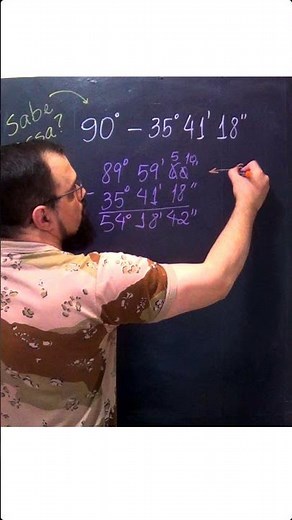 Sabe
essa?
90° – 35° 41' 18"
5 10
89° 59' 60"
– 35° 41' 18"
54° 18' 42"